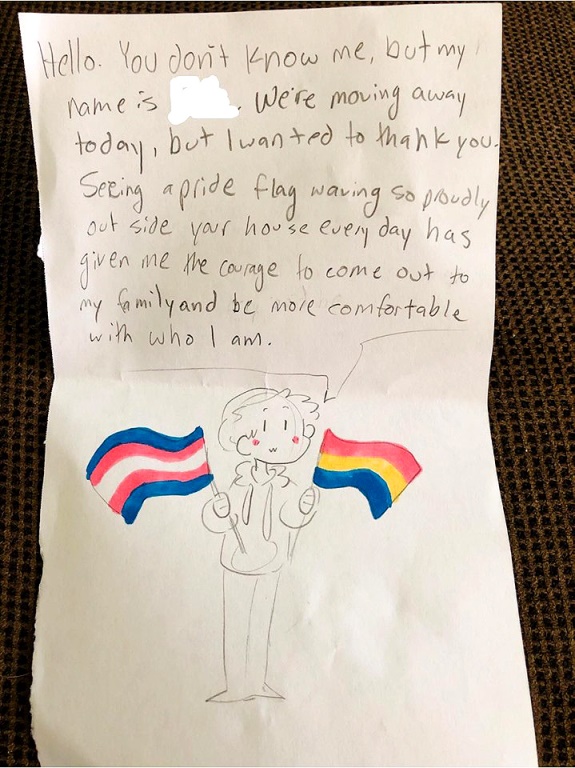 Hello. You don't know me, but my
name is . We're moving away
today, but I wanted to thank you.
Seeing a pride flag waving so proudly
out side your house every day has
given me the courage to come out to
my family and be more comfortable
with who I am.